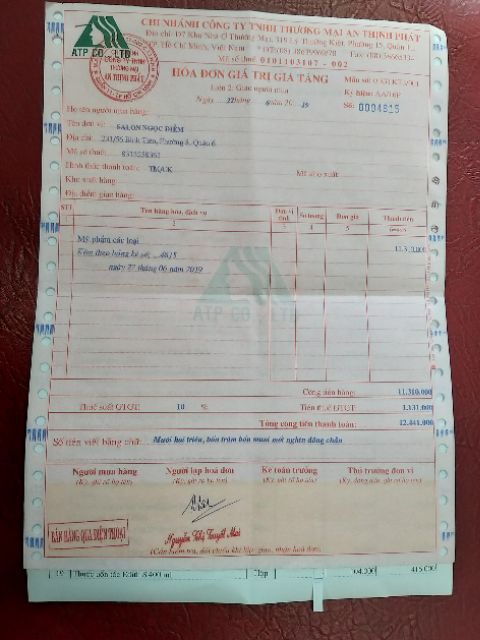 CHI NHÁNH CÔNG TY TNHH THƯƠNG MẠI AN THỊNH PHÁT
Địa chỉ: 197 Khu Nhà Ở Thương Mại, 319 Lý Thường Kiệt, Phường 15, Quận 11
TP. Hồ Chí Minh, Việt Nam
Mã số thuế 0101103107 - 002
ATP CO., LTD
CÔNG TY
TNHH
THƯƠNG MẠI
AN THỊNH PHÁT
HÓA ĐƠN GIÁ TRỊ GIA TĂNG
Liên 2: Giao người mua
Ngày 27 tháng 20 19
Ký hiệu: AA/16P
Số: 0004815
Họ tên người mua hàng:
Tên đơn vị: SALON NGỌC DIỄM
Địa chỉ: 231/56 Bình Tiên, Phường 8, Quận 6
Mã số thuế:
Hình thức thanh toán: TM/CK
Kho xuất hàng:
Mã số xuất:
Địa điểm giao hàng:
STT Tên hàng hóa, dịch vụ Đơn vị tính Số lượng Đơn giá Thành tiền
Mỹ phẩm các loại 11.310.000
Kèm theo bảng kê số: 4815
ngày 27 tháng 06 năm 2019
ATP CO., LTD
Cộng tiền hàng: 11.310.000
Thuế suất GTGT 10 % Tiền thuế GTGT 1.131.000
Tổng cộng tiền thanh toán: 12.441.000
Số tiền viết bằng chữ: Mười hai triệu, bốn trăm bốn mươi mốt nghìn đồng chẵn
Người mua hàng Người lập hoá đơn Kế toán trưởng Thủ trưởng đơn vị
(Ký, ghi rõ họ tên) (Ký, ghi rõ họ tên) (Ký, ghi rõ họ tên) (Ký, đóng dấu, ghi rõ họ tên)
BÁN HÀNG QUA ĐIỆN THOẠI
Nguyễn Thị Tuyết Mai
(Cần kiểm tra, đối chiếu khi lập, giao, nhận hoá đơn)